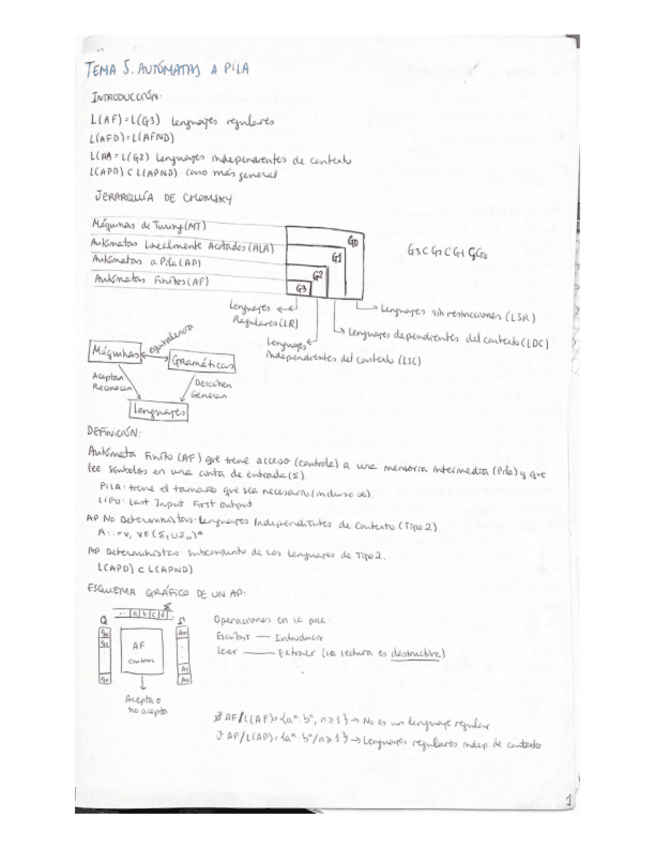 TEMA 5. AUTÓMATAS A PILA
INTRODUCCIÓN:
L(AF)=L(G3) Lenguajes regulares
L(AFD)=L(AFND)
L(AP)=L(G2) Lenguajes independientes de contexto
L(APD) ⊂ L(APND) caso más general
JERARQUÍA DE CHOMSKY
Máquinas de Turing (MT)
G0
Autómatas Linealmente Acotados (ALA)
G1
G3 ⊂ G2 ⊂ G1 ⊆ G0
Autómatas a Pila (AP)
G2
Autómatas Finitos (AF)
G3
Lenguajes Regulares (LR)
Lenguajes sin restricciones (LSR)
Lenguajes dependientes del contexto (LDC)
Lenguajes independientes del contexto (LIC)
Máquinas
equivalencia
Gramáticas
Aceptan
Reconocen
Describen
Generan
Lenguajes
DEFINICIÓN:
Autómata Finito (AF) que tiene acceso (controla) a una memoria intermedia (Pila) y que
lee símbolos en una cinta de entrada (Σ).
PILA: tiene el tamaño que sea necesario (incluso ∞).
LIFO: Last Input First Output
AP No Deterministas: Lenguajes Independientes de Contexto (Tipo 2).
A::=v, v∈(Σ_T ∪ Σ_N)*
AP Deterministas: subconjunto de los Lenguajes de Tipo 2.
L(APD) ⊂ L(APND)
ESQUEMA GRÁFICO DE UN AP:
Σ
a b c d
Q
Γ
AF
control
Acepta o
no acepta
Operaciones en la pila:
Escribir — Introducir
Leer — Extraer (la lectura es destructiva)
∄ AF/L(AF)={aⁿ·bⁿ, n≥1} → No es un lenguaje regular
∃ AP/L(AP)={aⁿ·bⁿ/n≥1} → Lenguajes regulares indep. de contexto
1